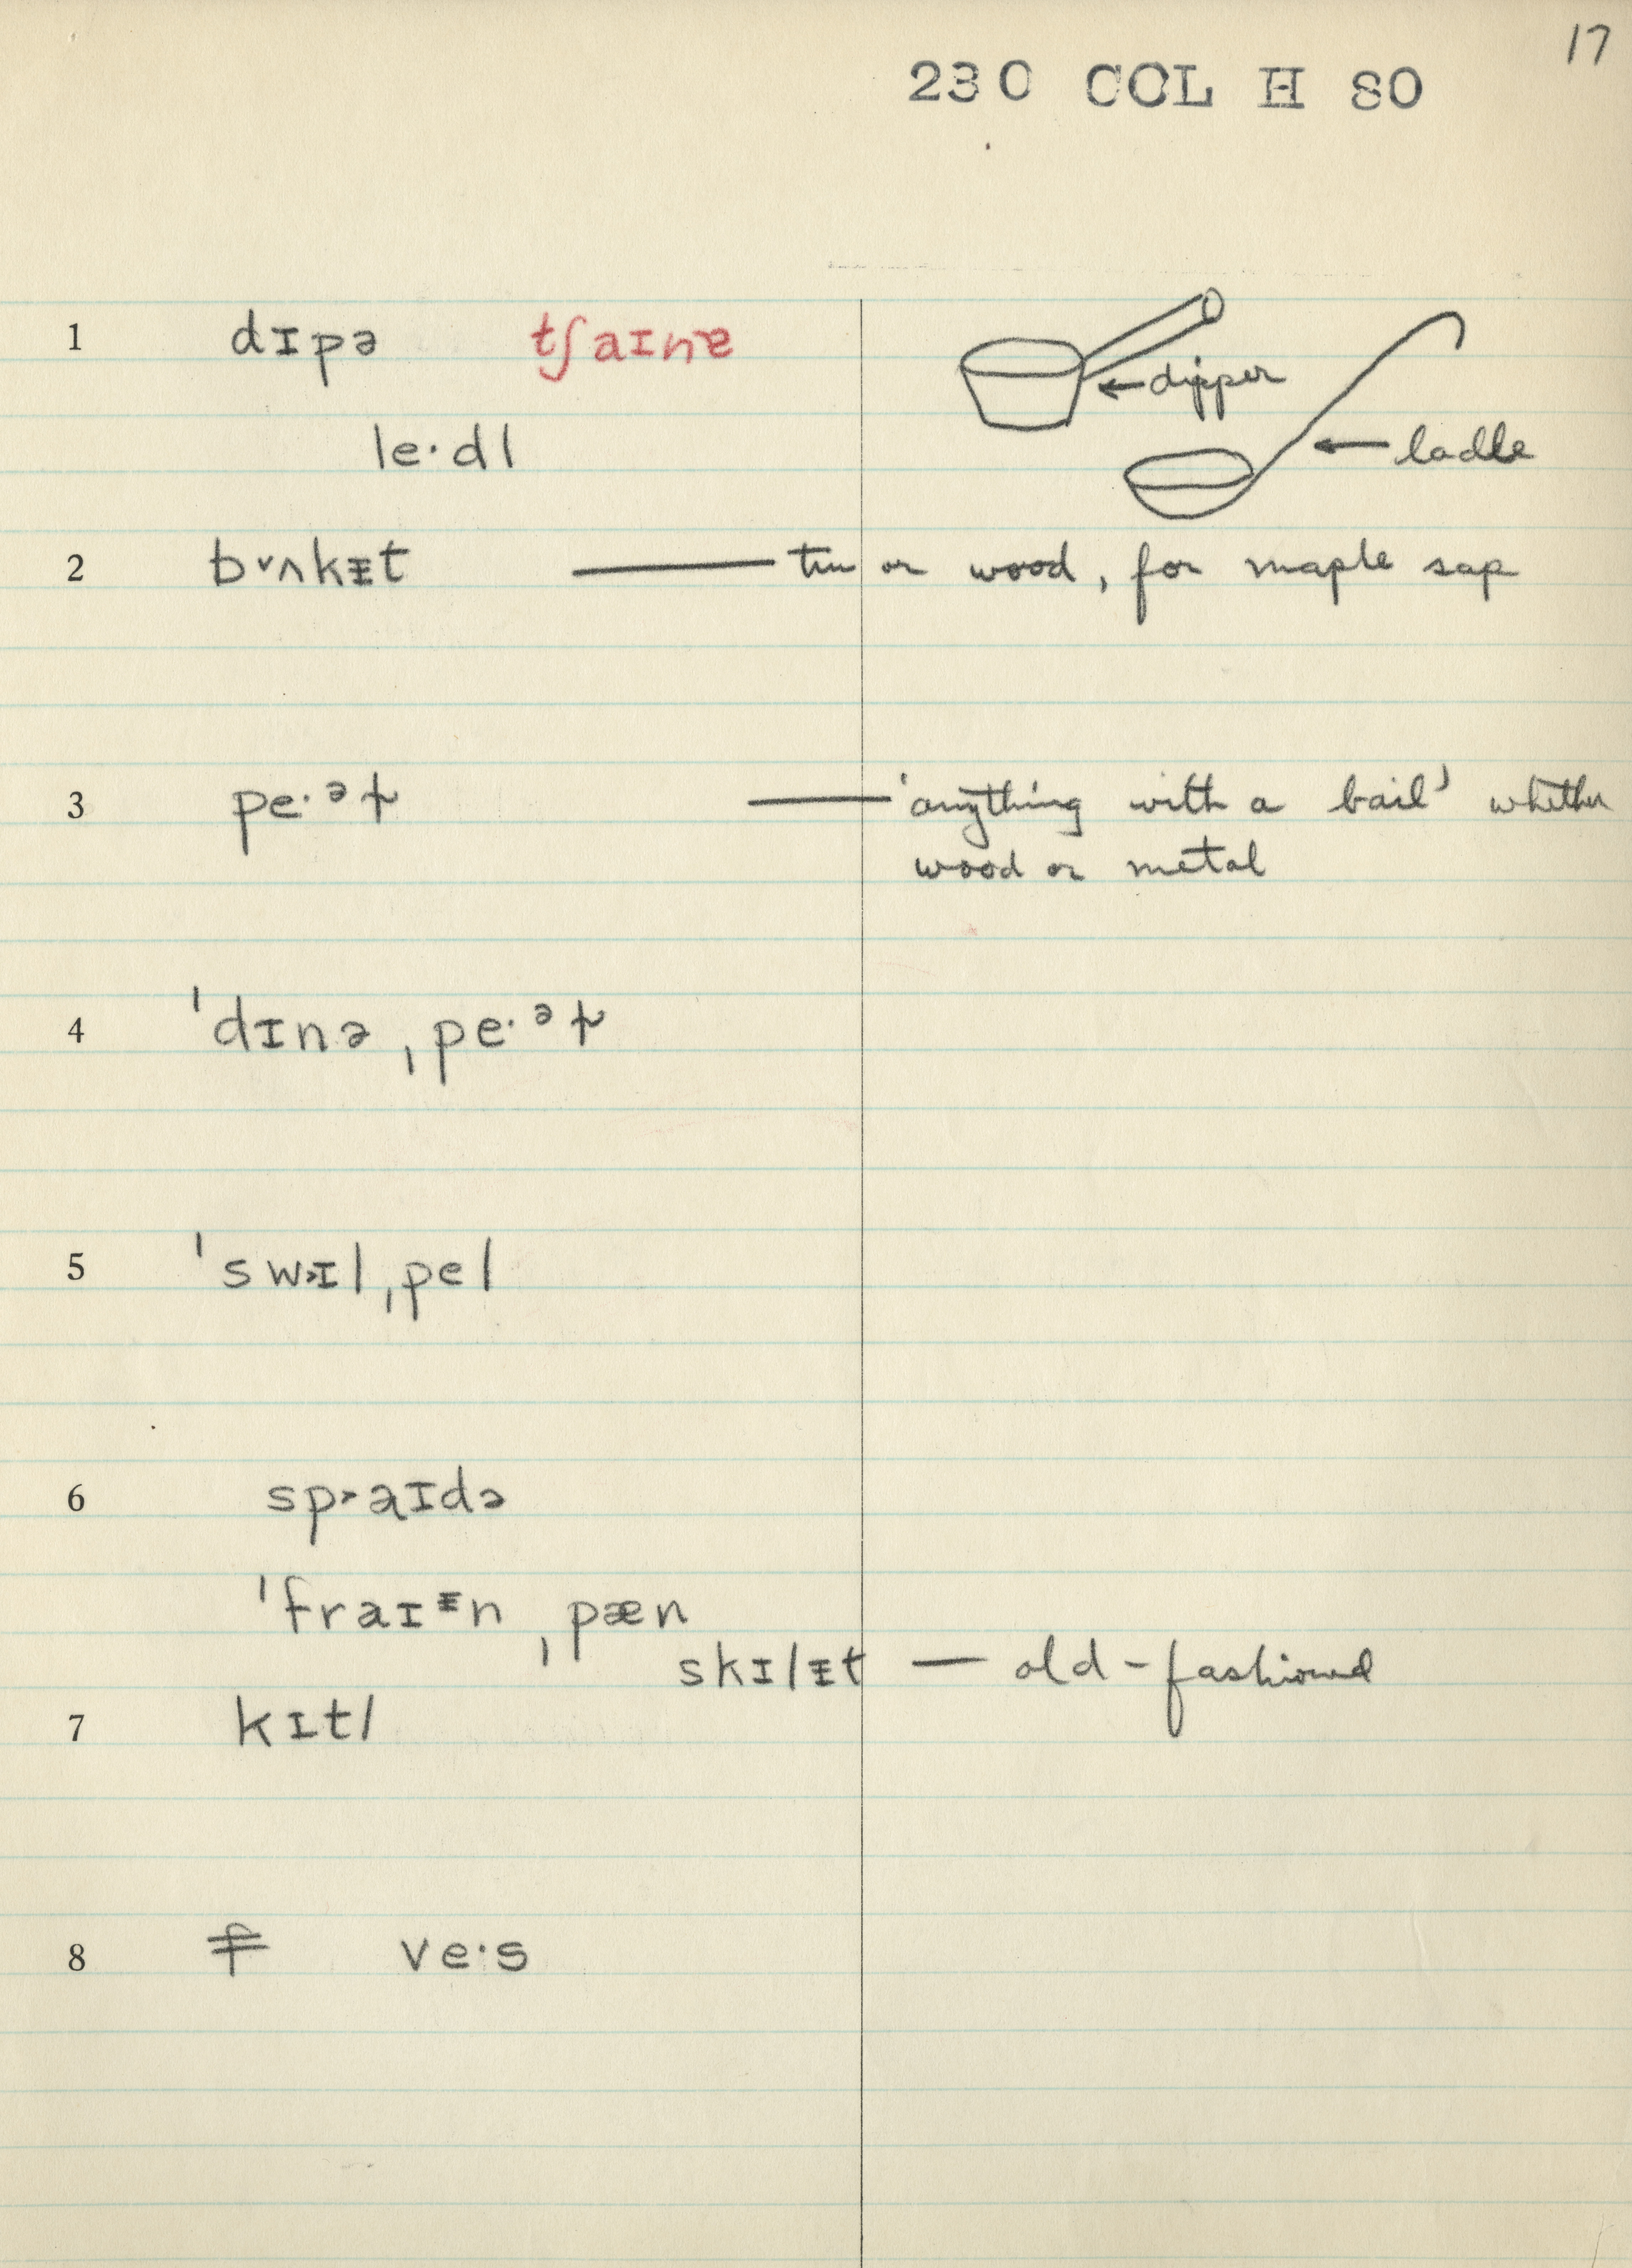 17
230 COL H 80
1 dɪpə tʃaɪnɐ
← dipper
le·dl
← ladle
2 b˅ʌkᵻt — tin or wood, for maple sap
3 pe·ᵊɫ — 'anything with a bail' whether
wood or metal
4 ˈdɪnə ˌpe·ᵊɫ
5 ˈsw˃ɪl ˌpel
6 sp˃aɪdə
ˈfraɪᵻn ˌpæn
skɪlᵻt — old-fashioned
7 kɪtl
8 ve·s